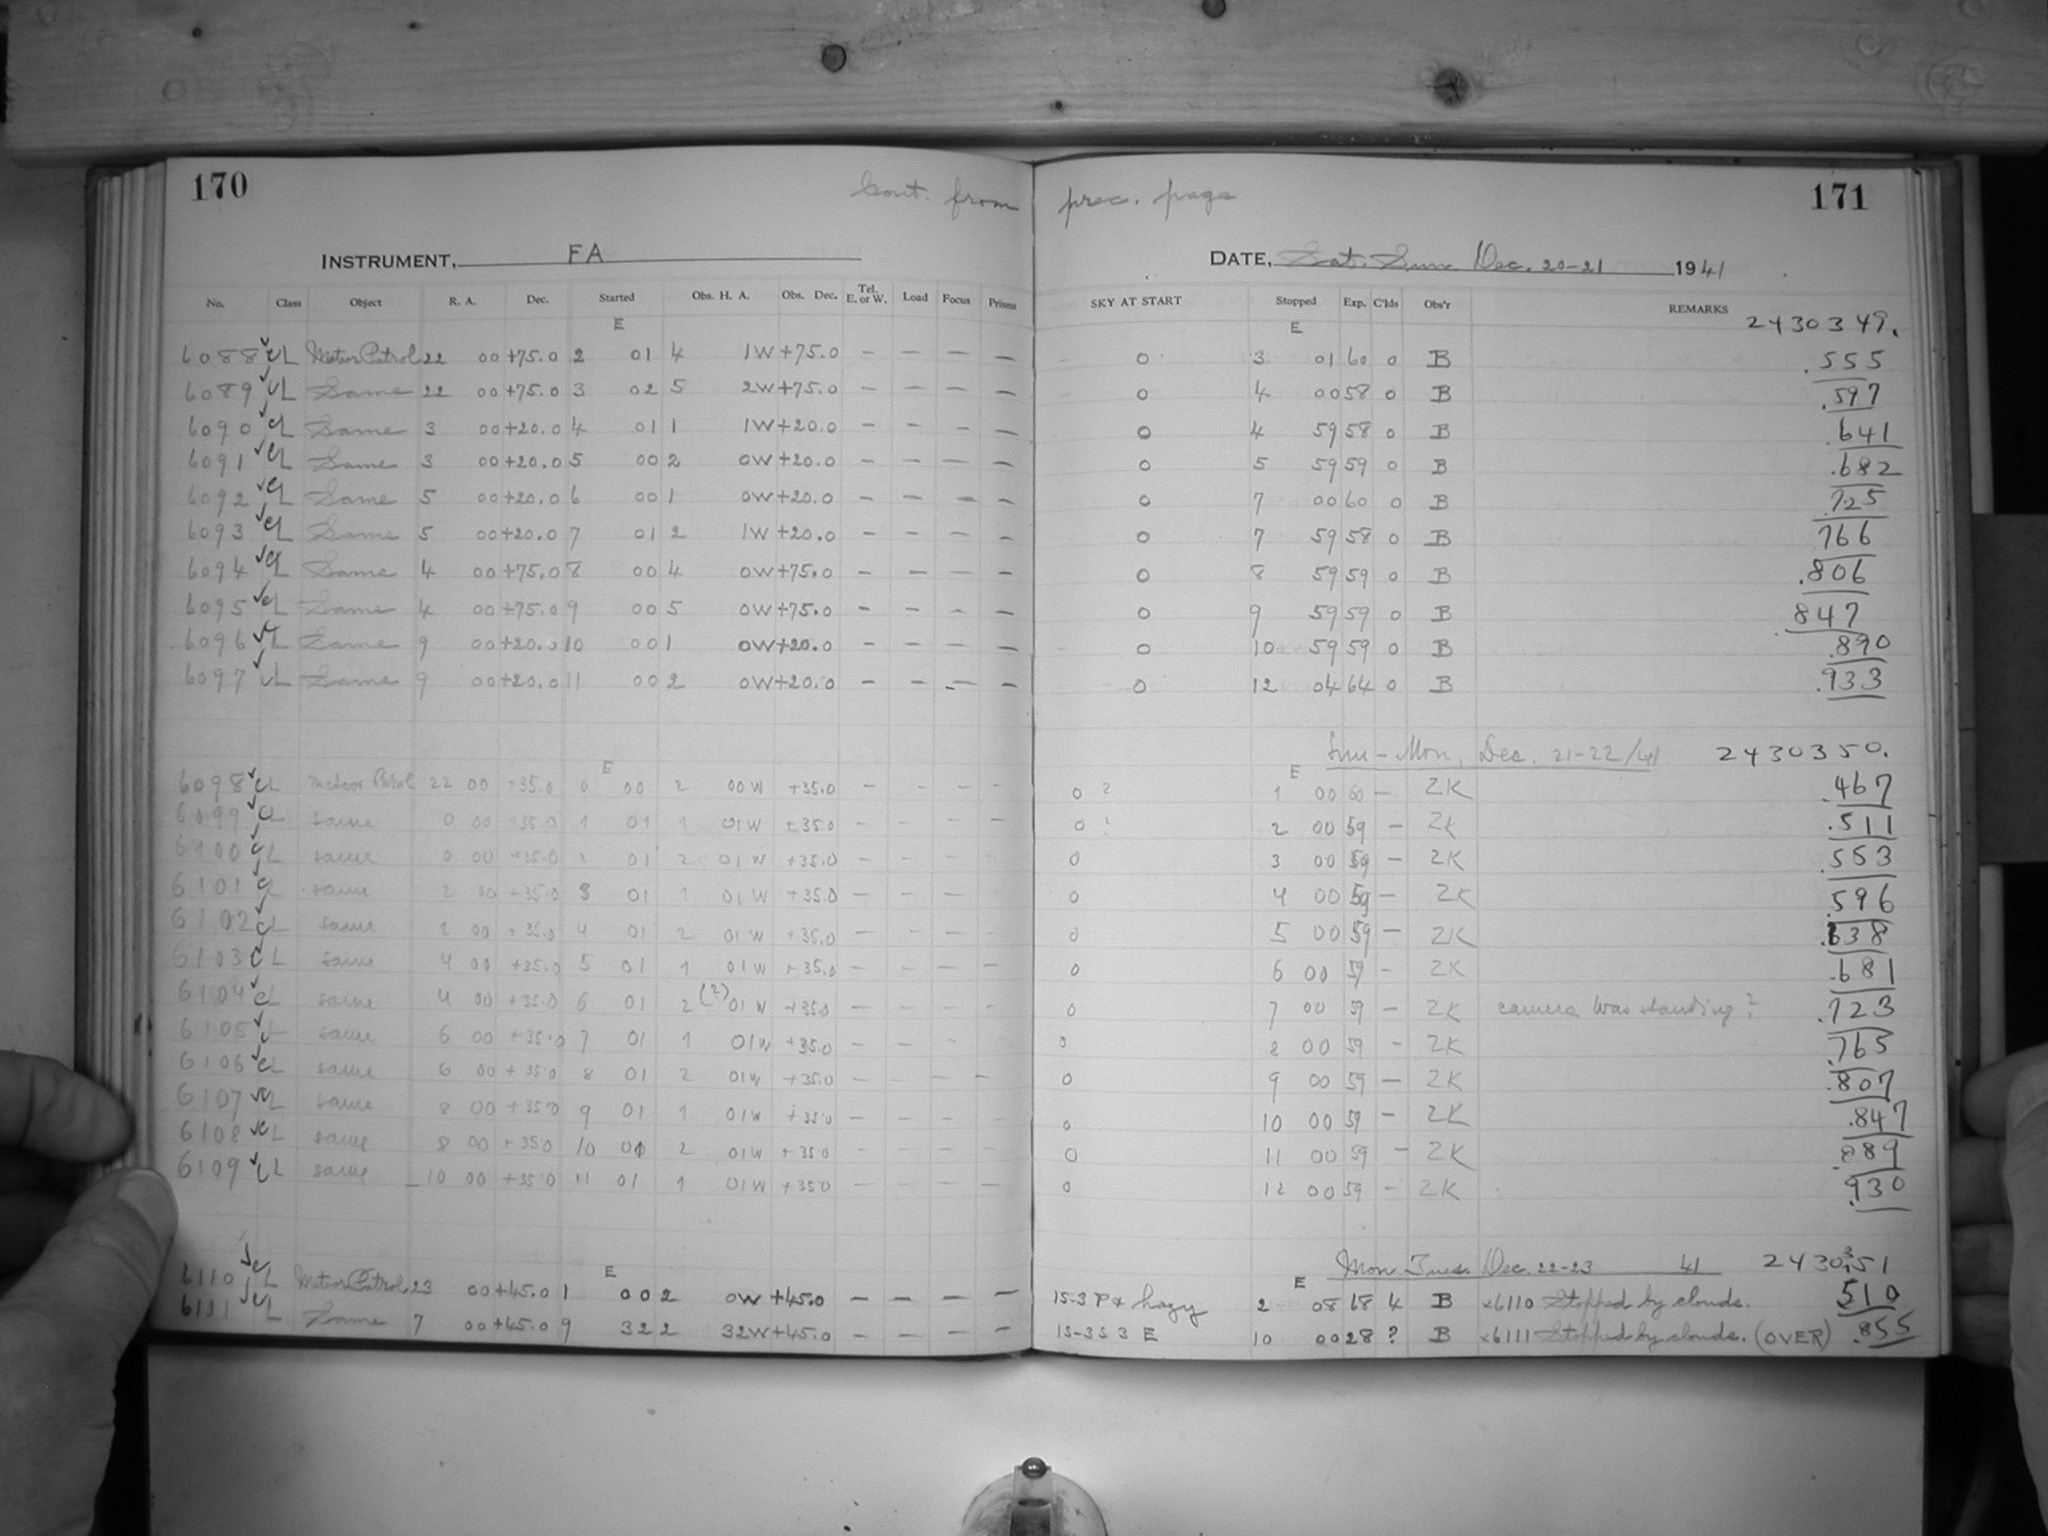 170 Cont. from prec. page 171
INSTRUMENT, FA DATE, Sat. Sun. Dec. 20-21 1941
No. Class Object R. A. Dec. Started Obs. H. A. Obs. Dec. Tel. E. or W. Load Focus Prisms SKY AT START Stopped Exp. C'lds Obs'r REMARKS
E E 2430349.
6088 ✓ CL Meteor Patrol 22 00 +75.0 2 01 4 1W +75.0 — — — — 0 3 01 60 0 B .555
6089 ✓ CL Same 22 00 +75.0 3 02 5 2W +75.0 — — — — 0 4 00 58 0 B .597
6090 ✓ CL Same 3 00 +20.0 4 01 1 1W +20.0 — — — — 0 4 59 58 0 B .641
6091 ✓ CL Same 3 00 +20.0 5 00 2 0W +20.0 — — — — 0 5 59 59 0 B .682
6092 ✓ CL Same 5 00 +20.0 6 00 1 0W +20.0 — — — — 0 7 00 60 0 B .725
6093 ✓ CL Same 5 00 +20.0 7 01 2 1W +20.0 — — — — 0 7 59 58 0 B 766
6094 ✓ CL Same 4 00 +75.0 8 00 4 0W +75.0 — — — — 0 8 59 59 0 B .806
6095 ✓ CL Same 4 00 +75.0 9 00 5 0W +75.0 — — — — 0 9 59 59 0 B 847
6096 ✓ CL Same 9 00 +20.0 10 00 1 0W +20.0 — — — — 0 10 59 59 0 B .890
6097 ✓ CL Same 9 00 +20.0 11 00 2 0W +20.0 — — — — 0 12 04 64 0 B .933
Sun - Mon, Dec. 21-22/41 2430350.
E E
6098 ✓ CL Meteor Patrol 22 00 +35.0 0 00 2 00W +35.0 — - - - 0 ? 1 00 60 — ZK .467
6099 ✓ CL same 0 00 +35.0 1 01 1 01W +35.0 — — — — 0 ? 2 00 59 — ZK .511
6100 ✓ CL same 0 00 +35.0 2 01 2 01W +35.0 — — — - 0 3 00 59 — ZK .553
6101 ✓ CL same 2 00 +35.0 3 01 1 01W +35.0 — — — - 0 4 00 59 — ZK .596
6102 ✓ CL same 2 00 +35.0 4 01 2 01W +35.0 — — — — 0 5 00 59 — ZK .638
6103 ✓ CL same 4 00 +35.0 5 01 1 01W +35.0 — — — — 0 6 00 59 - ZK .681
6104 ✓ CL same 4 00 +35.0 6 01 2 (?) 01W +35.0 — — — — 0 7 00 59 — ZK camera was standing? .723
6105 ✓ CL same 6 00 +35.0 7 01 1 01W +35.0 — — — — 0 8 00 59 - ZK .765
6106 ✓ CL same 6 00 +35.0 8 01 2 01W +35.0 — — — — 0 9 00 59 — ZK .807
6107 ✓ CL same 8 00 +35.0 9 01 1 01W +35.0 — — — — 0 10 00 59 — ZK .847
6108 ✓ CL same 8 00 +35.0 10 01 2 01W +35.0 — — — — 0 11 00 59 — ZK .889
6109 ✓ CL same 10 00 +35.0 11 01 1 01W +35.0 — — — — 0 12 00 59 — ZK .930
Mon. Tues. Dec. 22-23 41 2430351
E E
6110 ✓ CL Meteor Patrol 23 00 +45.0 1 00 2 0W +45.0 — — — — hazy 2 08 68 4 B ×6110 Stopped by clouds. 510
6111 ✓ CL Same 7 00 +45.0 9 32 2 32W +45.0 — — — — 15-3S 3 E 10 00 28 ? B ×6111 Stopped by clouds. (OVER) .855